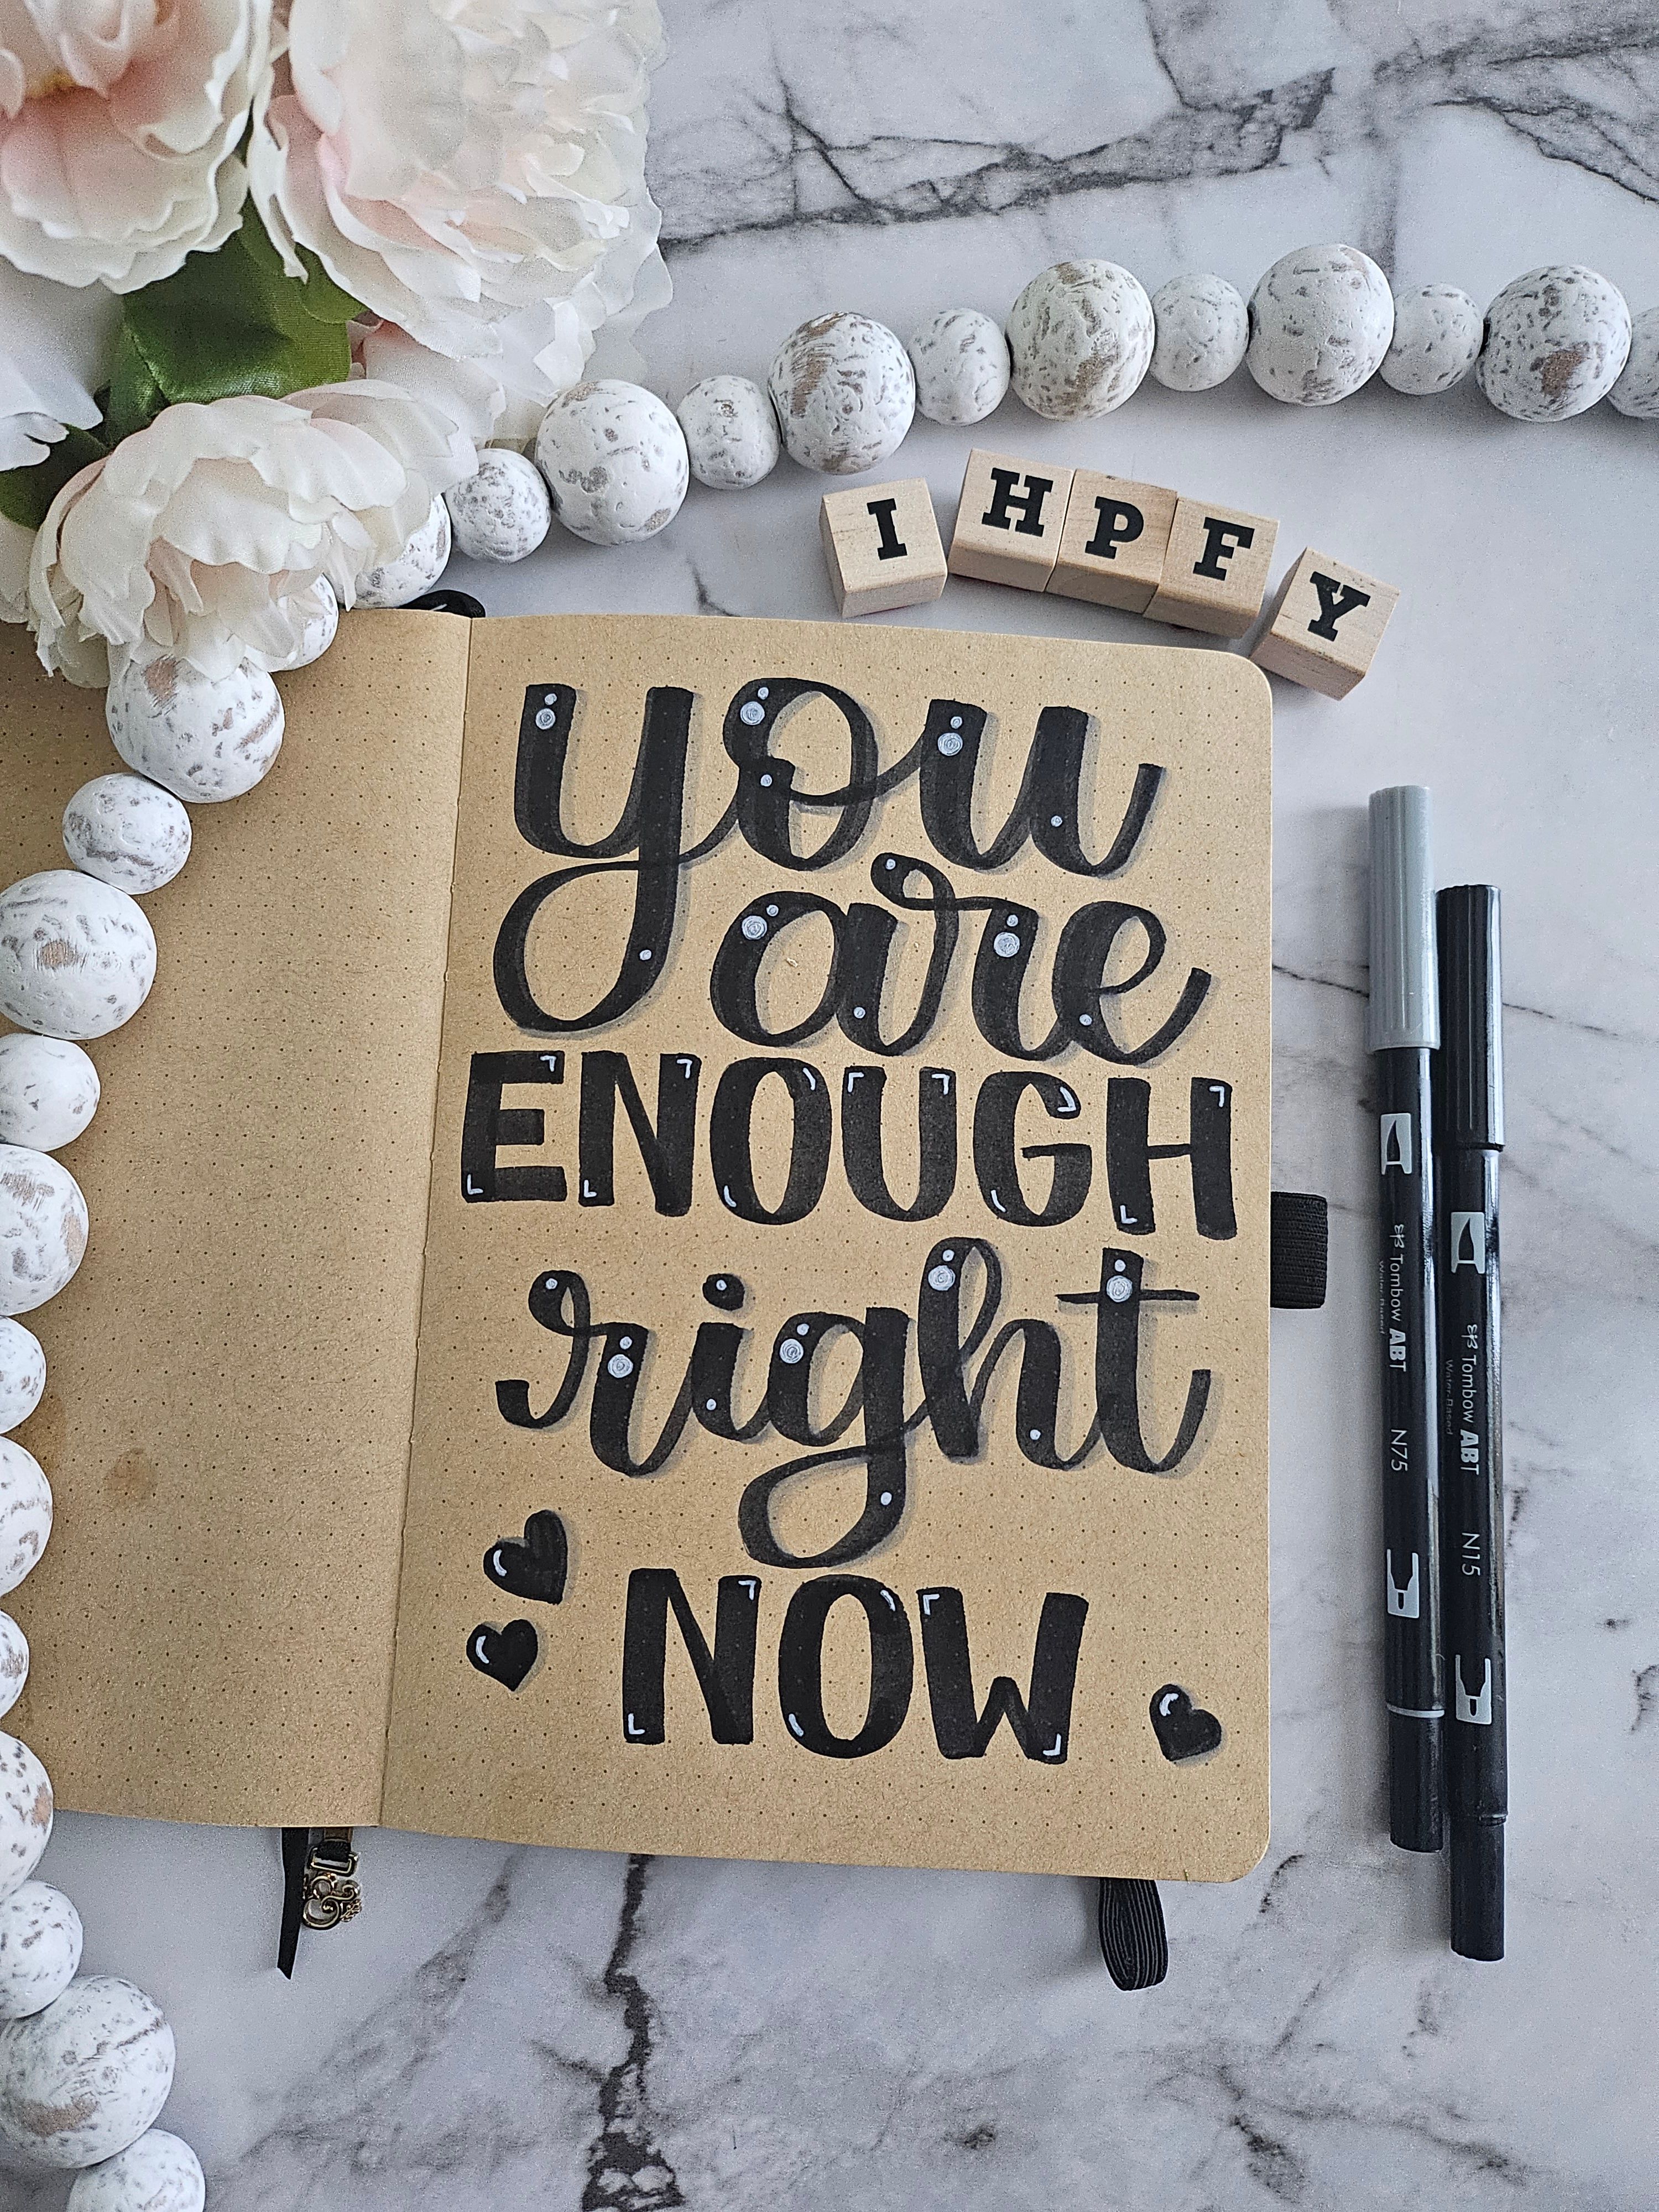 I HPF Y
you
are
ENOUGH
right
NOW
Tombow ABT N75
Water-Based
Tombow ABT N15
Water-Based